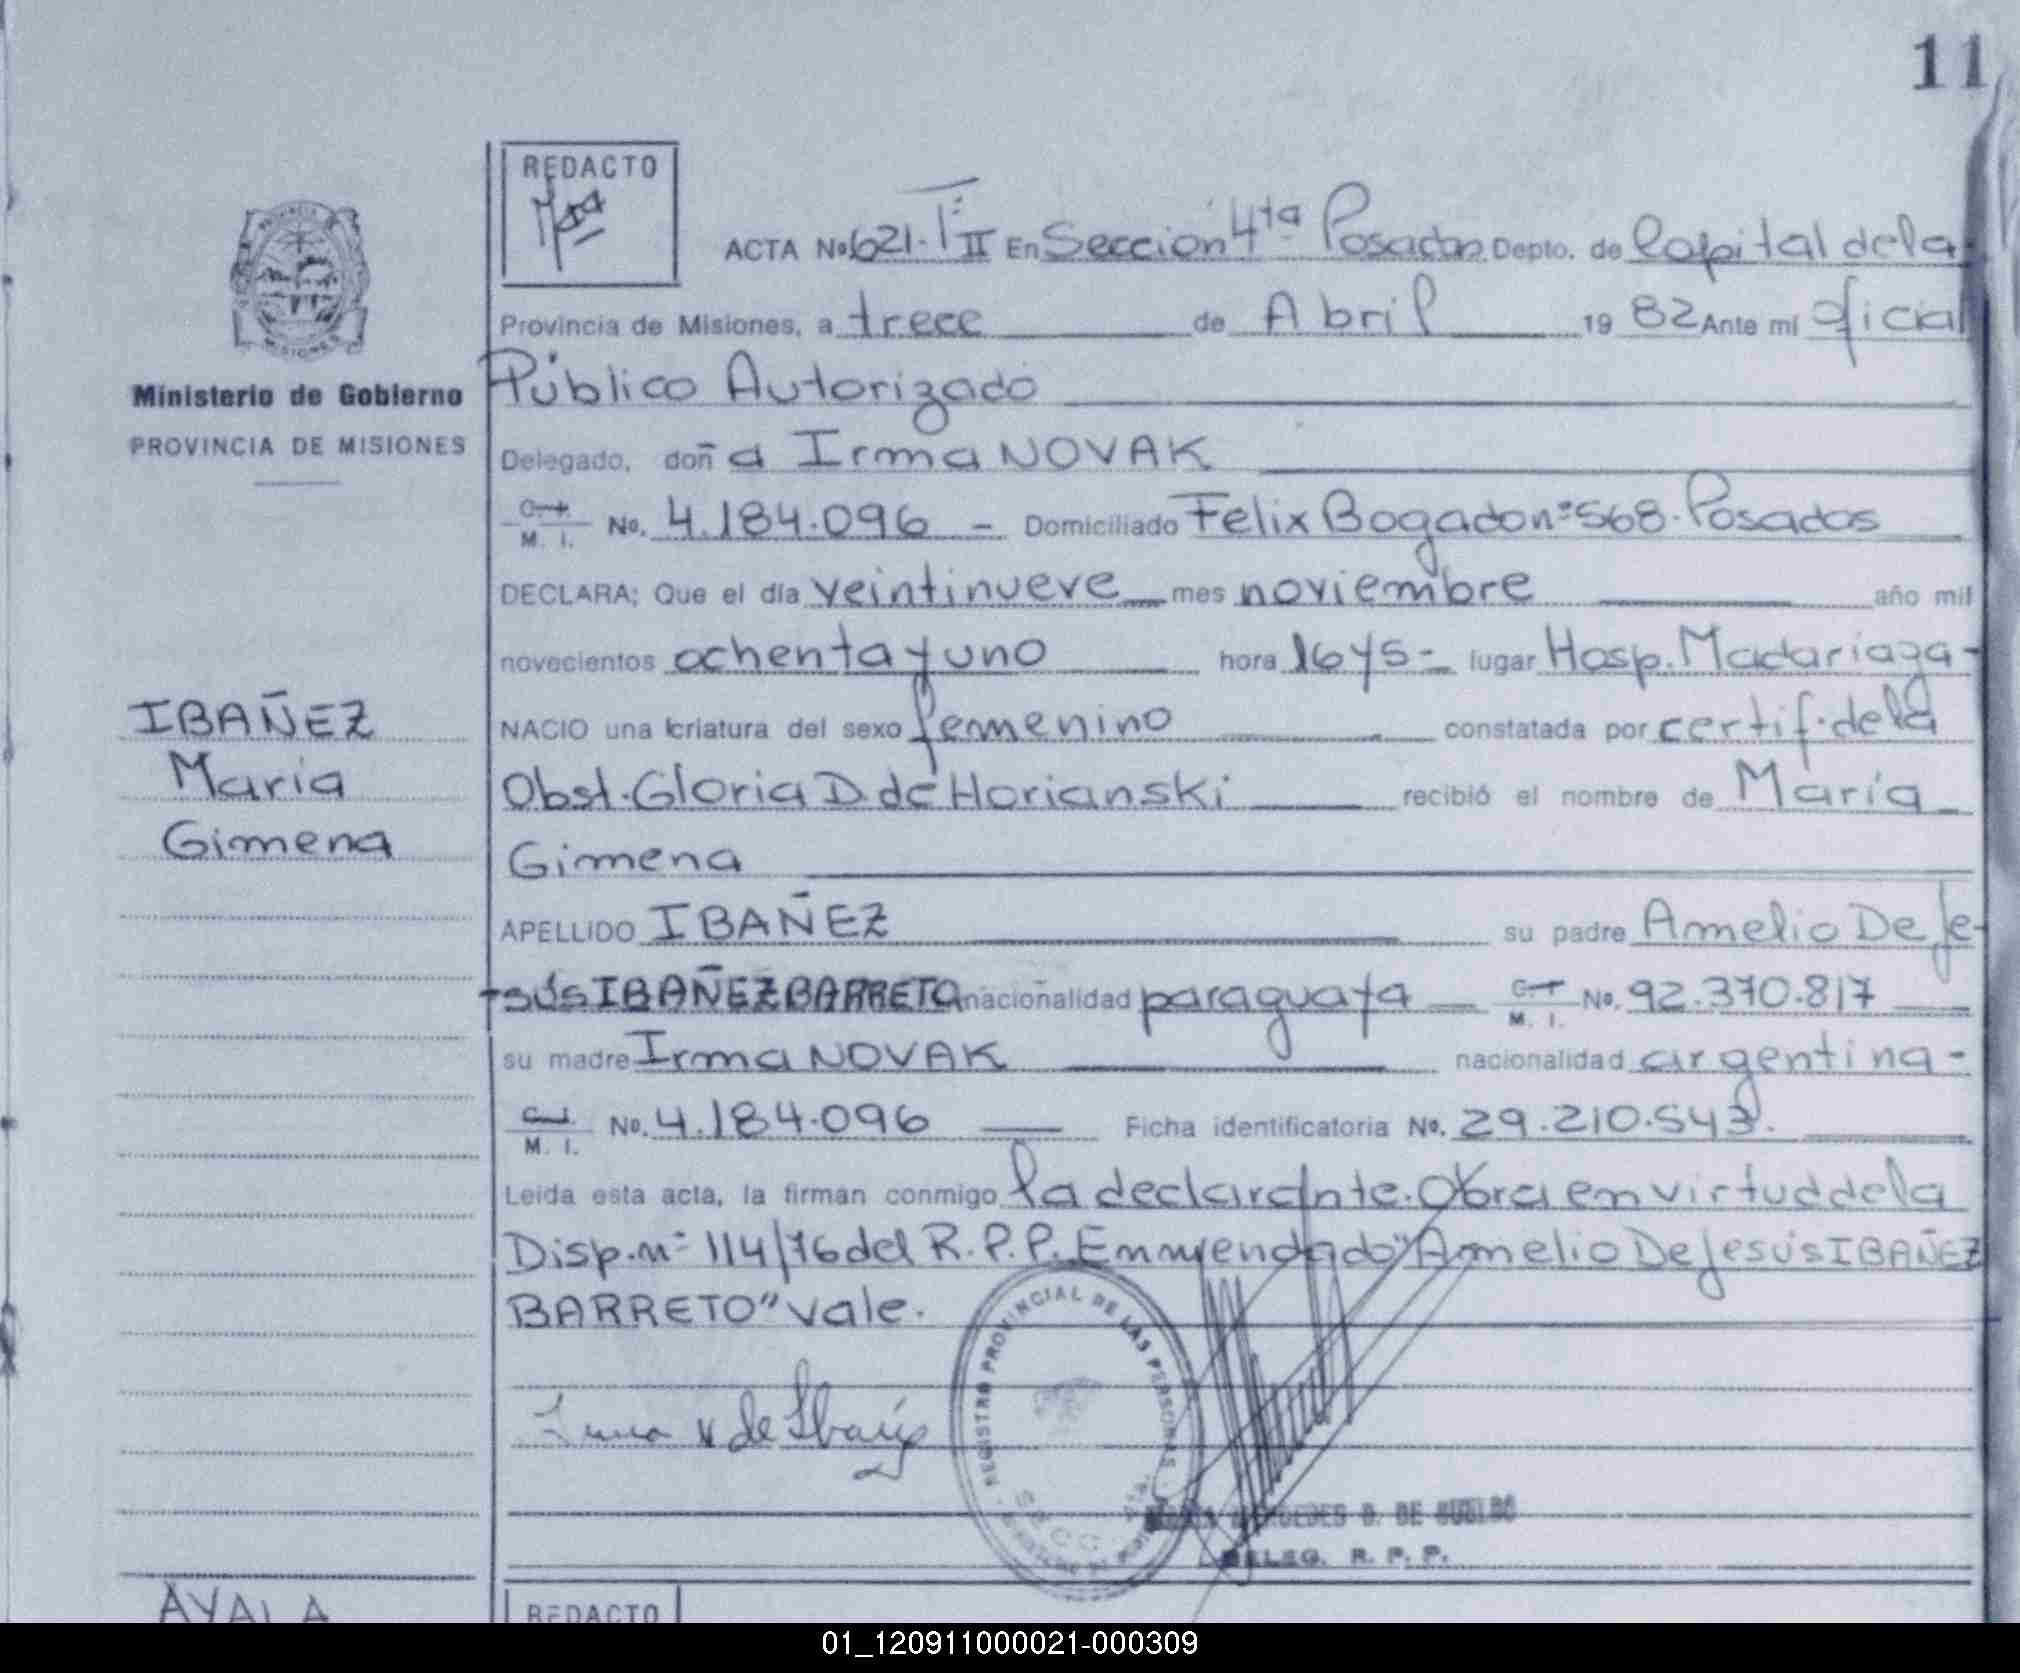 11
REDACTO
PROVINCIA
MISIONES
Ministerio de Gobierno
PROVINCIA DE MISIONES
ACTA No 621. T=II En Sección 4ta Posadas Depto. de Capital de la
Provincia de Misiones, a trece de Abril 19 82 Ante mí Oficial
Público Autorizado
Delegado, doña Irma NOVAK
C. I.
M. I. No. 4.184.096 - Domiciliado Felix Bogado nº 568. Posadas
DECLARA; Que el día veintinueve mes noviembre año mil
novecientos ochenta y uno hora 16 y 5 - lugar Hosp. Madariaga -
NACIO una criatura del sexo femenino constatada por certif. de la
Obst. Gloria D. de Horianski recibió el nombre de María
Gimena
APELLIDO IBAÑEZ su padre Amelio De Je-
sús IBAÑEZ BARRETO nacionalidad paraguaya C. I.
M. I. No. 92.370.817
su madre Irma NOVAK nacionalidad argentina -
C. I.
M. I. No. 4.184.096 Ficha identificatoria No. 29.210.543.
Leída esta acta, la firman conmigo la declarante. Obra en virtud de la
Disp. nº 114/76 del R.P.P. Enmyendado "Amelio De Jesús IBAÑEZ
BARRETO" vale.
IBAÑEZ
María
Gimena
Irma N de Ibañez
REGISTRO PROVINCIAL DE LAS PERSONAS
SECC. 4ta.
DE
DELEG. R. P. P.
AYALA
REDACTO
01_120911000021-000309